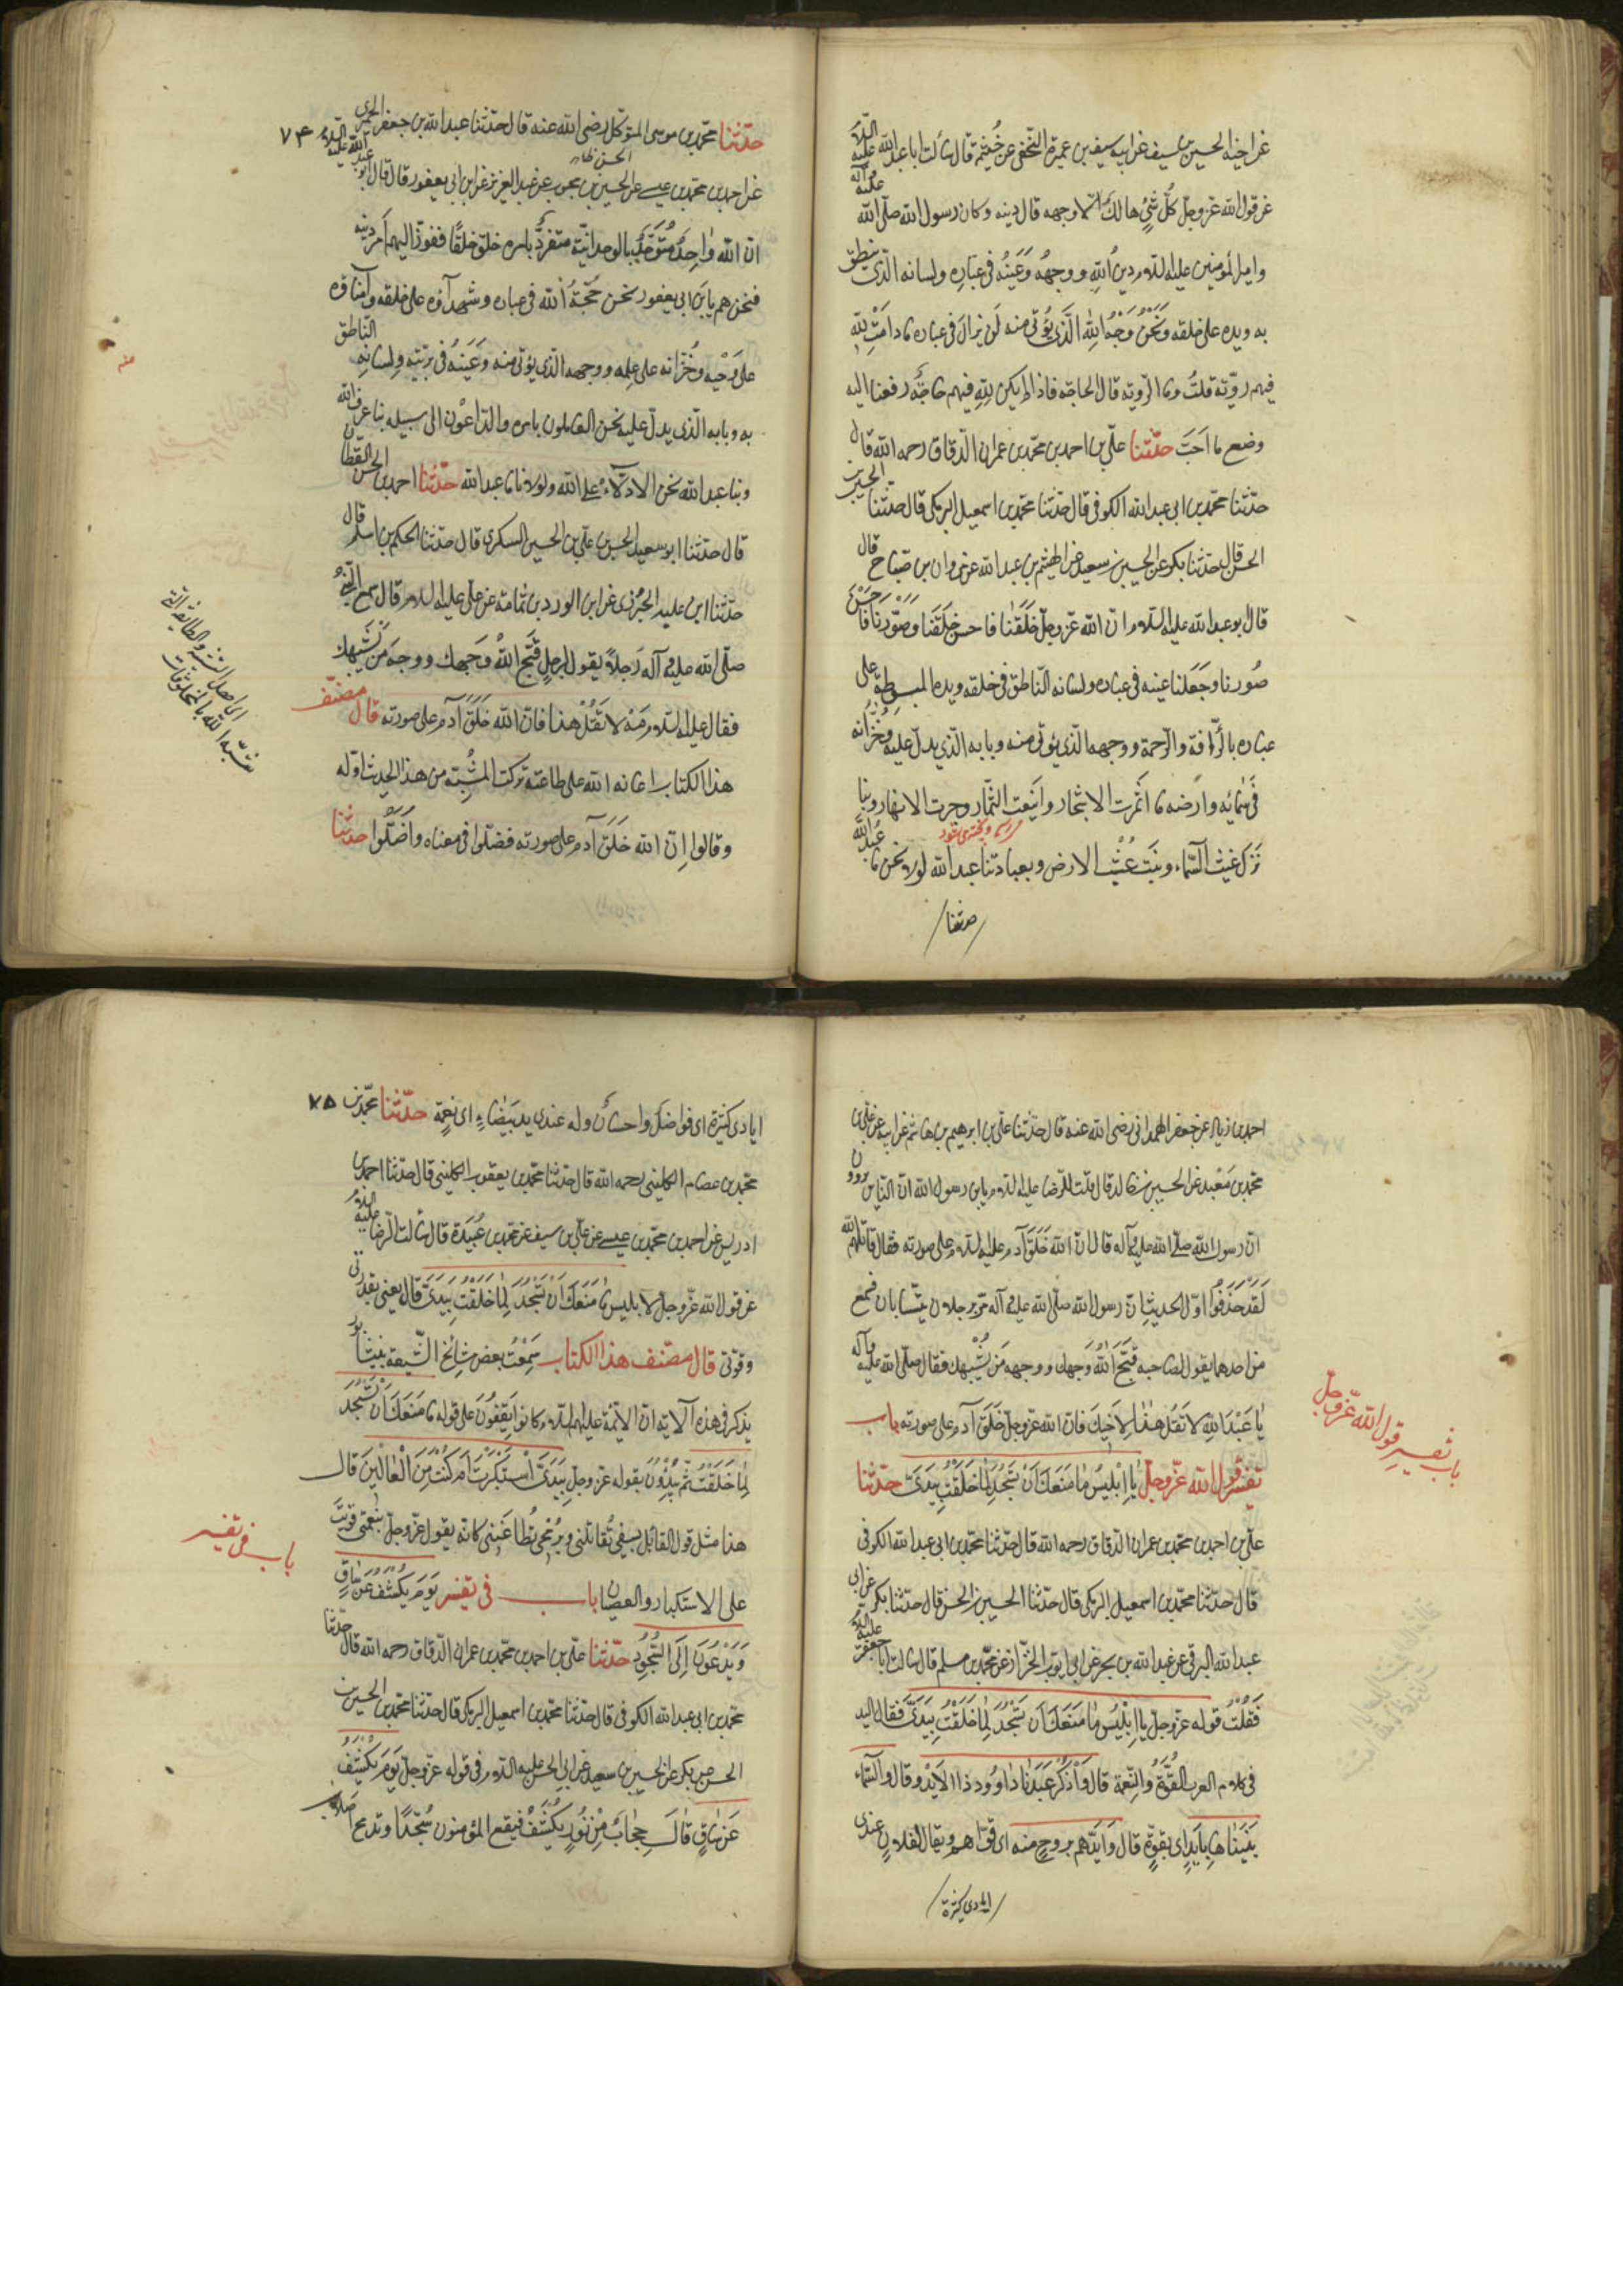 عن اخيه الحسين بن سيف عن ابيه سيف بن عميرة النخعى عن خيثم قال سألت ابا عبد الله عليه السلام
عن قول الله عز وجل كُلُّ شَىْءٍ هالك الا وجهه قال دينه وكان رسول الله صلى الله عليه وآله
وامير المؤمنين عليه السلام دينُ اللهِ ووجهُه وَعَينُه فى عبادِه ولسانه الذى ينطق
به ويده على خلقه وَنَحْنُ وَجْهُ اللهِ الَّذى يُؤتى منه لَن نزالَ فى عباده ما دامَتْ لِلّهِ
فيهم رويّة قلتُ وما الرويّة قال الحاجة فاذا لم يكن لِلّهِ فيهم حاجَةٌ رفعنا اليه
وصنع ما اَحَبَّ حدّثنا علىّ بن احمد بن محمّد بن عمران الدقاق رحمه الله قال
حدّثنا محمّد بن ابى عبد الله الكوفى قال حدّثنا محمّد بن اسمعيل البرمكى قال حدّثنا الحسين بن
الحسن قال حدثنا بكر عن الحسين بن سعيد عن الهيثم بن عبد الله عن مروان بن صبّاح قال
قال ابو عبد الله عليه السلام ان الله عزّ وجلّ خَلَقَنا فاحسن خَلقَنا وصَوّرنا فاَحسَنَ
صُورنا وجَعَلنا عينه فى عباده ولسانه الناطق فى خلقه ويده المبسوطة على
عباده بالرّأفة والرّحمة ووجهه الذى يؤتى منه وبابه الّذى يدلّ عليه وخُزّانه
فى سمائه وارضه بنا اَثمرت الاشجار واَينَعت الثّمار وجرت الانهار وبنا
نَزل غيث السّماء ونبت عُشْب الارض وبعبادتنا عبد الله لولا نحن ما عُبِدَ اللهُ
حدثنا
حدّثنا محمّد بن موسى المتوكل رضى الله عنه قال حدّثنا عبد الله بن جعفر الحميرى ٧٤
عن احمد بن محمّد بن عيسى عن الحسين بن محبوب عن عبد العزيز عن ابن ابى يعفور قال قال ابو عبد الله عليه السلام
انّ الله واحِدٌ مُتَوَحِّدٌ بالوحدانيّة متفرّدٌ بامره خلق خلقًا ففوّض اليهم اَمر دينه
فنحن هم يا بنَ ابى يعفور نحن حُجّةُ الله فى عباده وشهدآؤه على خلقه وامناؤه
على وَحْيِه وخُزّانه على علمه ووجهه الذى يؤتى منه وَعَينُهُ فى بريّتِه ولسانه الناطق
به وبابه الّذى يدلّ عليه نحن العاملون بامره والدّاعُون الى سبيله بنا عرف الله
وبنا عبد الله نحن الادلّاءُ على الله ولولانا ما عبد الله حدّثنا احمد بن الحسن القطان
قال حدّثنا ابو سعيد الحسن بن علىّ بن الحسين السكرى قال حدّثنا الحكم بن اسلم قال
حدّثنا ابن عليه الجُرَيْرى عن ابى الورد بن ثمامة عن علىّ عليه السلام قال سمع النبىّ
صلّى الله عليه وآله رَجُلاً يقول لرجلٍ قَبَّح اللهُ وَجهك ووجهَ مَن يُشبِهك
فقال عليه السلام مَهْ لا تَقُلْ هذا فانّ الله خَلَقَ آدم على صورته قال مصنّف
هذا الكتاب اعانه الله على طاعته تركت المُشبّهة من هذا الحديث اوّله
وقالوا اِنّ الله خَلَقَ آدم على صورته فضلّوا فى معناه واَضَلّوا حدّثنا
احمد بن زياد بن جعفر الهمدانى رضى الله عنه قال حدّثنا علىّ بن ابرهيم بن هاشم عن ابيه عن علىّ بن
محمّد بن مَعْبد عن الحسين بن خالد قال قلت للرّضا عليه السلام يا بن رسول الله انّ النّاس يروون
انّ رسول الله صلّى الله عليه وآله قال انّ الله خَلَقَ آدم عليه السلام على صورته فقال قاتلهم الله
لَقَد حَذَفُوا اوّل الحديث انّ رسول الله صلّى الله عليه وآله مرّ برجلان يتسابّان فسمع
من احدهما يقول لصاحبه قَبَّحَ اللهُ وَجهك ووجهَ مَن يُشْبِهك فقال صلّى الله عليه وآله
يا عَبْدَ اللهِ لا تَقُل هذا لِاَخيكَ فانّ الله عزّ وجلّ خَلَقَ آدم على صورته باب
تفسير قول الله عزّ وجلّ يا اِبْليسُ ما مَنَعَكَ اَنْ تَسْجُدَ لِما خَلَقْتُ بِيَدَىَّ حدّثنا
علىّ بن احمد بن محمّد بن عمران الدقاق رحمه الله قال حدّثنا محمّد بن ابى عبد الله الكوفى
قال حدّثنا محمّد بن اسمعيل البرمكى قال حدّثنا الحسين بن الحسن قال حدّثنا بكر عن ابى
عبد الله البرقى عن عبد الله بن بحر عن ابى ايّوب الخزّاز عن محمّد بن مسلم قال سالت ابا جعفر عليه السلام
فَقُلْتُ قوله عزّ وجلّ يا اِبْليسُ ما مَنَعَكَ اَن تَسْجُدَ لِما خَلَقْتُ بِيَدَىَّ فقال اليد
فى كلام العرب القُوَّةُ والنِّعمة قال وَاذْكُرْ عَبْدَنا داوُود ذا الاَيْد وقال والسّماء
بَنَيناها بِاَيدٍ اى بقوّةٍ قال وَاَيّدَهم بروحٍ منه اى قوّاهم ويقال لفلان عندى
ايادى كثيرة
باب تفسير قول الله عزّ وجلّ
ايادى كثيرة اى فواضل واحسانٌ وله عندى يد بَيضاء اى نِعمة حدّثنا محمّد بن ٧٥
محمّد بن عصام الكلينى رحمه الله قال حدّثنا محمّد بن يعقوب الكلينى قال حدّثنا احمد بن
ادريس عن احمد بن محمّد بن عيسى عن علىّ بن سيف عن محمّد بن عُبَيْدَة قال سألت الرّضا عليه السلام
عن قول الله عزّ وجلّ لابليس ما مَنَعَكَ اَنْ تَسْجُدَ لِما خَلَقْتُ بِيَدَىَّ قال يعنى بقدرتى
وقوّتى قال مصنّف هذا الكتاب سَمِعْتُ بعض مشائخ الشّيعة بنيشابور
يذكر فى هذه الآية انّ الائمّة عليهم السلام كانوا يَقِفُونَ على قوله ما مَنَعَكَ اَنْ تَسْجُدَ
لِما خَلَقْتُ ثمّ يبتدؤن بقوله عزّ وجلّ بِيَدَىَّ اَسْتَكْبَرْتَ اَم كُنْتَ مِنَ الْعالينَ قال
هذا مثل قول القائل بسيفى تُقاتلنى وبرُمحى تُطاعنى كانّه يقول عزّ وجلّ بنعمتى قَويتَ
على الاستكبار والعصيان باب فى تفسير يَوْمَ يُكْشَفُ عَنْ ساقٍ
وَيُدْعَوْنَ اِلَى السُّجُودِ حدّثنا علىّ بن احمد بن محمّد بن عمران الدقاق رحمه الله قال حدّثنا
محمّد بن ابى عبد الله الكوفى قال حدّثنا محمّد بن اسمعيل البرمكى قال حدّثنا محمّد بن الحسين بن
الحسن عن بكر عن الحسين بن سعيد عن ابى الحسن عليه السلام فى قوله عزّ وجلّ يَوْمَ يُكْشَفُ
عَنْ ساقٍ قال حِجابٌ مِنْ نُورٍ يُكْشَفُ فيقع المؤمنون سُجّدًا وتدمج اصلاب
باب فى تفسير